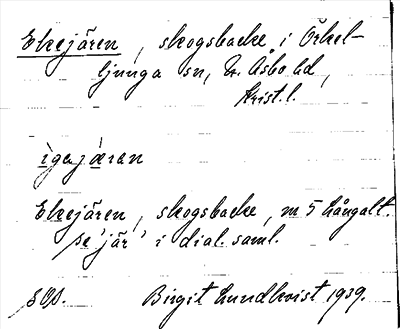 Ekejären, skogsbacke i Örkel-
ljunga sn, N. Åsbo hd,
Krist. l.
ìgajæ̀ran
Ekejären, skogsbacke, m 5 Långalt.
se 'jär' i dial. saml.
SOD. Birgit Lundkvist 1939.